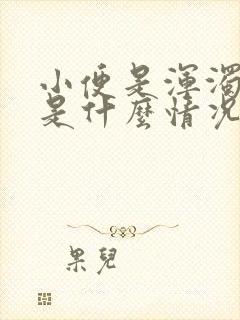 小便是渾濁
是什麼情況
果兒